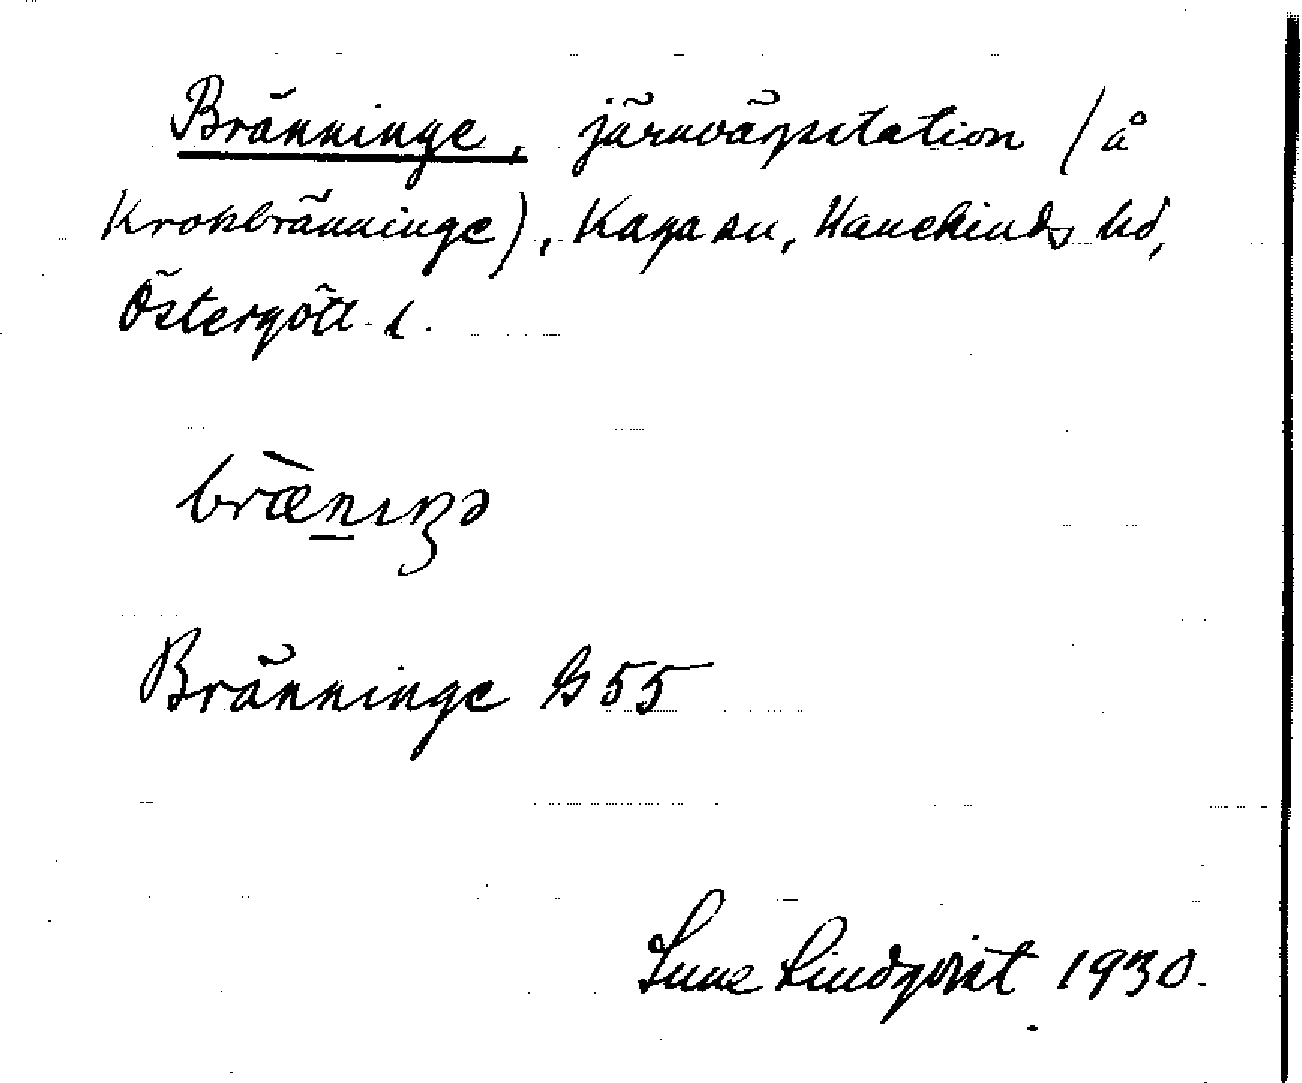 Bränninge, järnvägsstation (å
Krokbränninge), Kaga sn, Hanekinds hd,
Östergötl. l.
bræ̀niŋə
Bränninge G 55
Sune Lindqvist 1930.